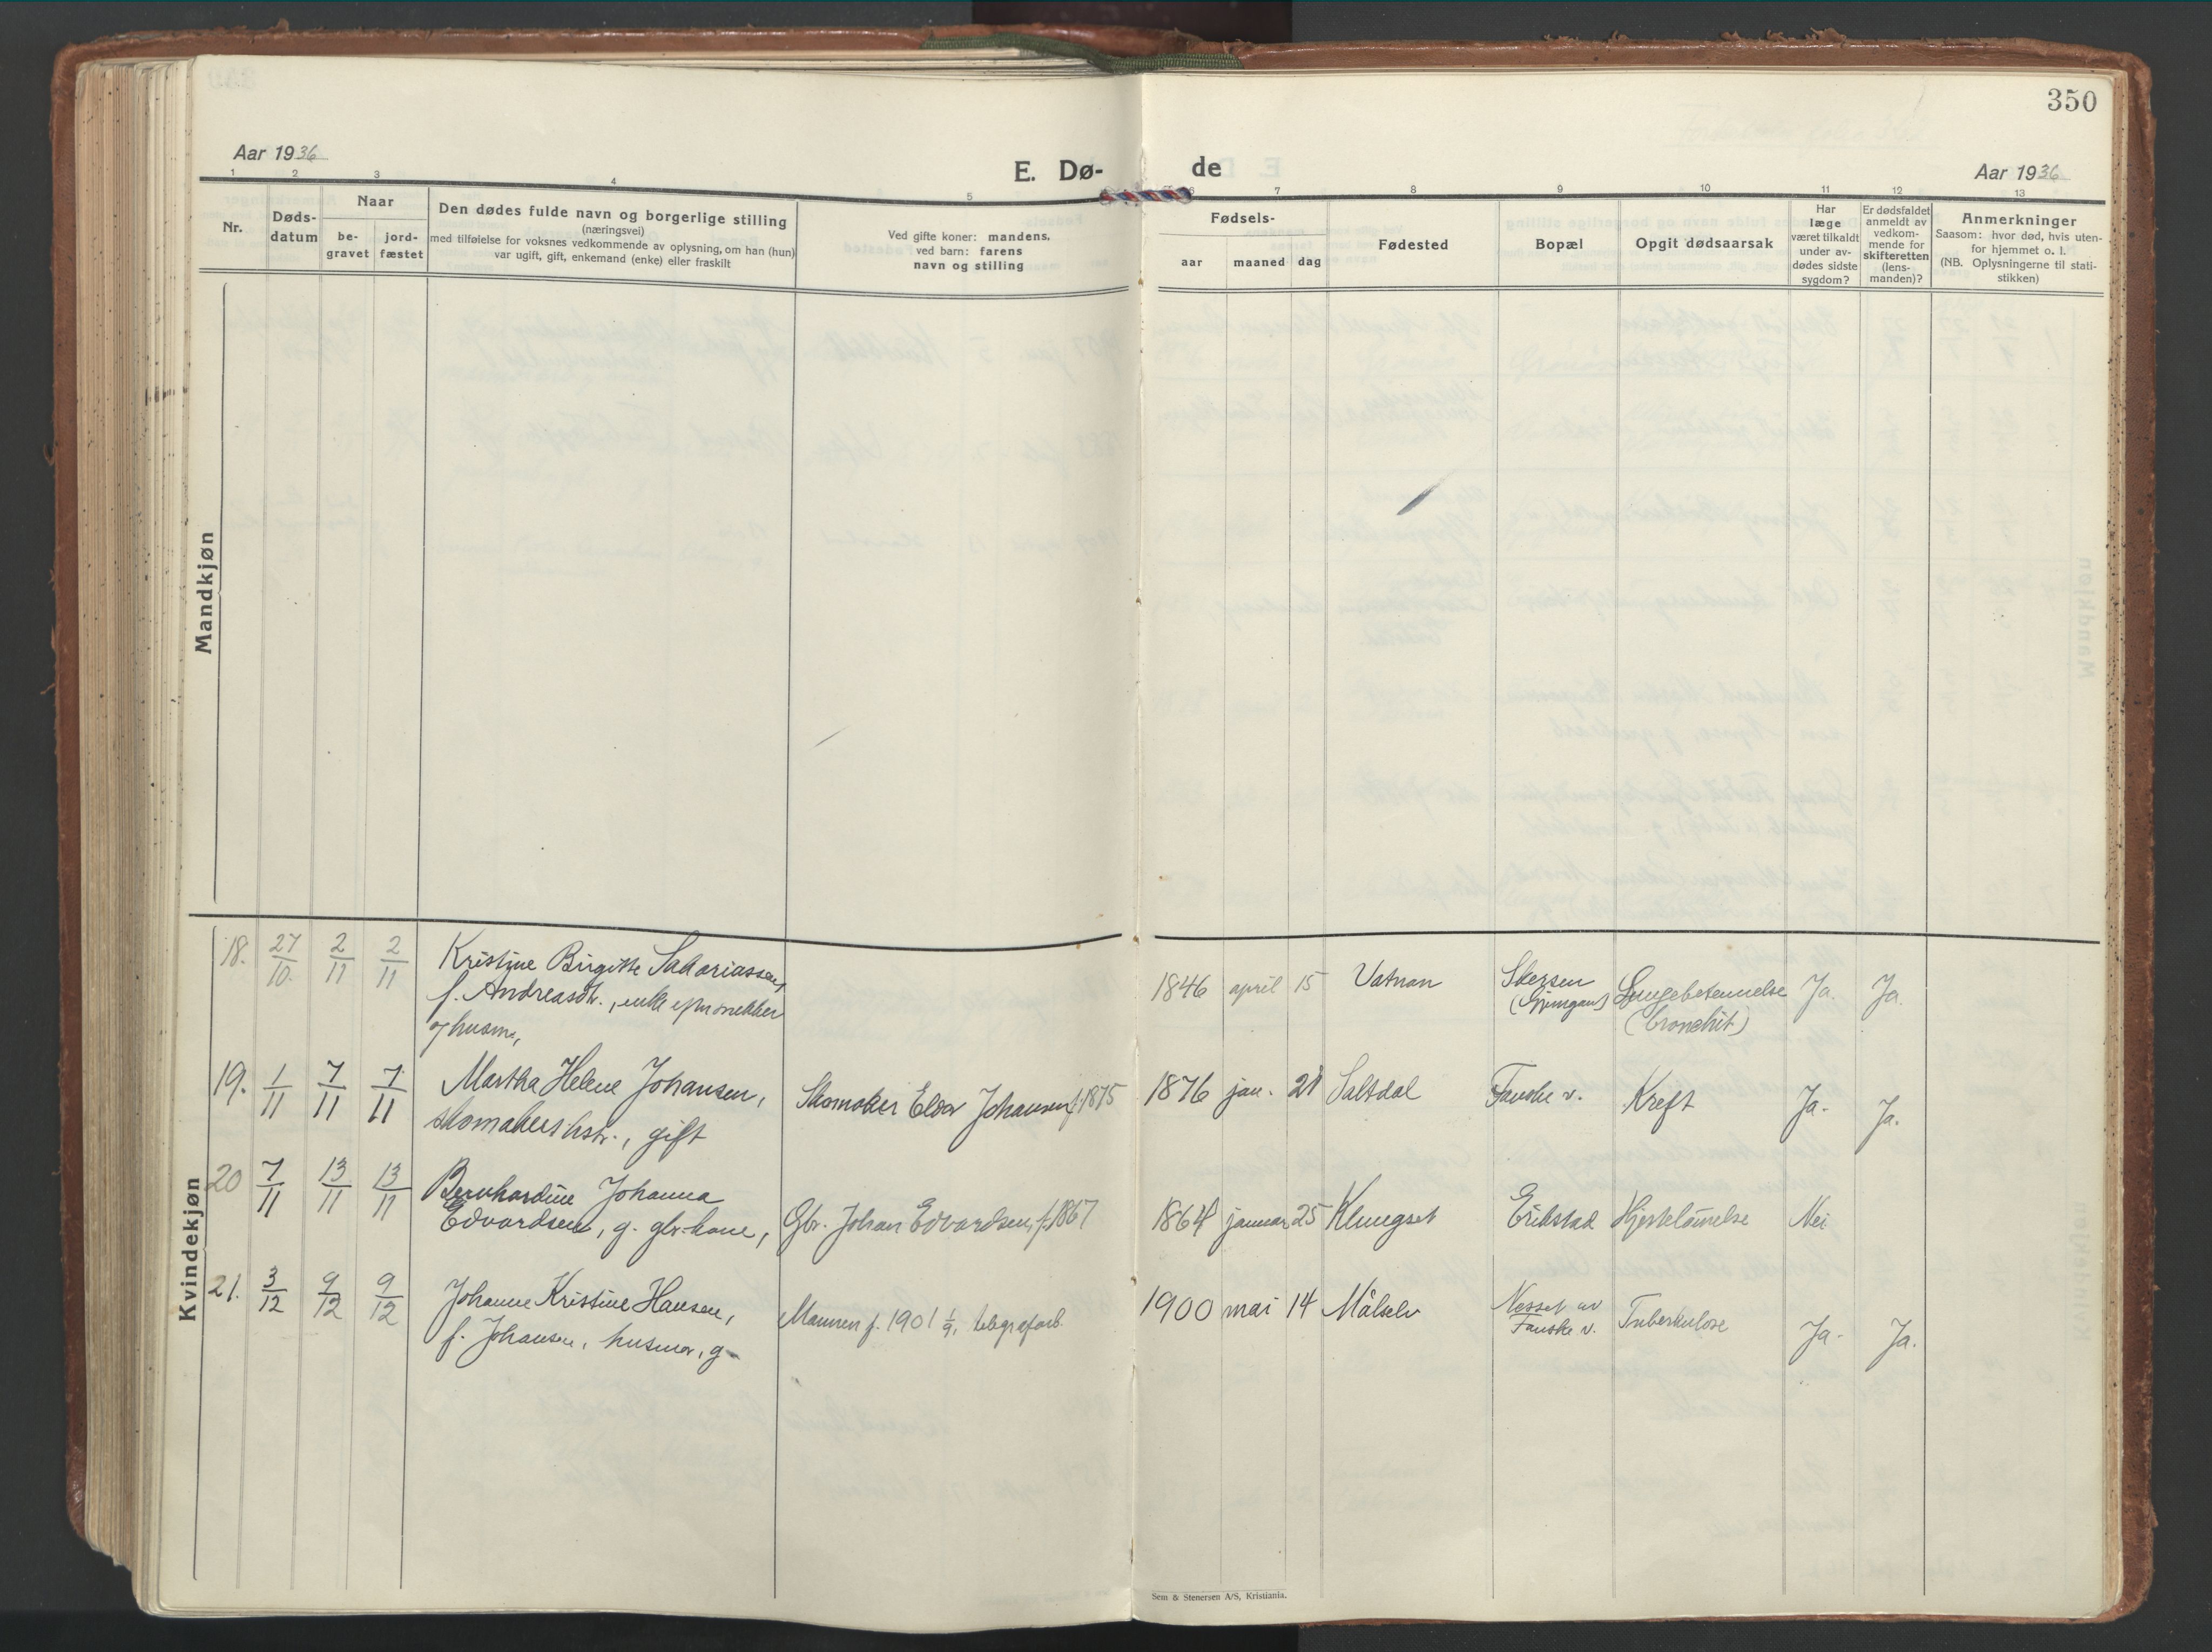 350
Aar 1936
E. Dø-
de
Aar 1936
1 2 3 4 5 6 7 8 9 10 11 12 13
Nr.
Døds-
datum
Naar
be-
gravet
jord-
fæstet
Den dødes fulde navn og borgerlige stilling
(næringsvei)
med tilføielse for voksnes vedkommende av oplysning, om han (hun)
var ugift, gift, enkemand (enke) eller fraskilt
Ved gifte koner: mandens,
ved barn: farens
navn og stilling
Fødsels-
aar
maaned
dag
Fødested
Bopæl
Opgit dødsaarsak
Har
læge
været tilkaldt
under av-
dødes sidste
sygdom?
Er dødsfaldet
anmeldt av
vedkom-
mende for
skifteretten
(lens-
manden)?
Anmerkninger
Saasom: hvor død, hvis uten-
for hjemmet o. l.
(NB. Oplysningerne til stati-
stikken)
Mandkjøn
Kvindekjøn
18. 27/10. 2/11 2/11 Kristine Birgitte Sakariassen, 1846 april 15 Vatnan Skersen Lungebetennelse Ja. Ja.
f. Andreasdt., enke
(bronchit)
og husm.,
19. 1/11 7/11 7/11 Martha Helene Johansen, Skomaker Johansen f. 1875 1876 jan. 21 Saltdal Fauske v. Kreft Ja. Ja.
skomakers hstr., gift
20 7/11 13/11 13/11 Bernhardine Johanna
Edvardsen, g. gbr.-kone, Gbr. Johan Edvardsen, f. 1867 1864 januar 25 Klungset Erikstad Hjertelamelse Nei
21. 3/12 9/12 9/12 Johanne Kristine Hansen, Mannen f. 1901 1/9, telegrafarb. 1900 mai 14 Målselv Nesset av Tuberkulose Ja. Ja.
Fauske v.
f. Johansen, husmor, g.
Sem & Stenersen A/S, Kristiania.